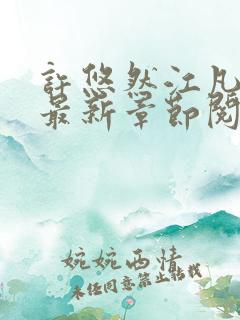 許悠然江凡
最新章節閱
婉婉西情
未经同意禁止转载